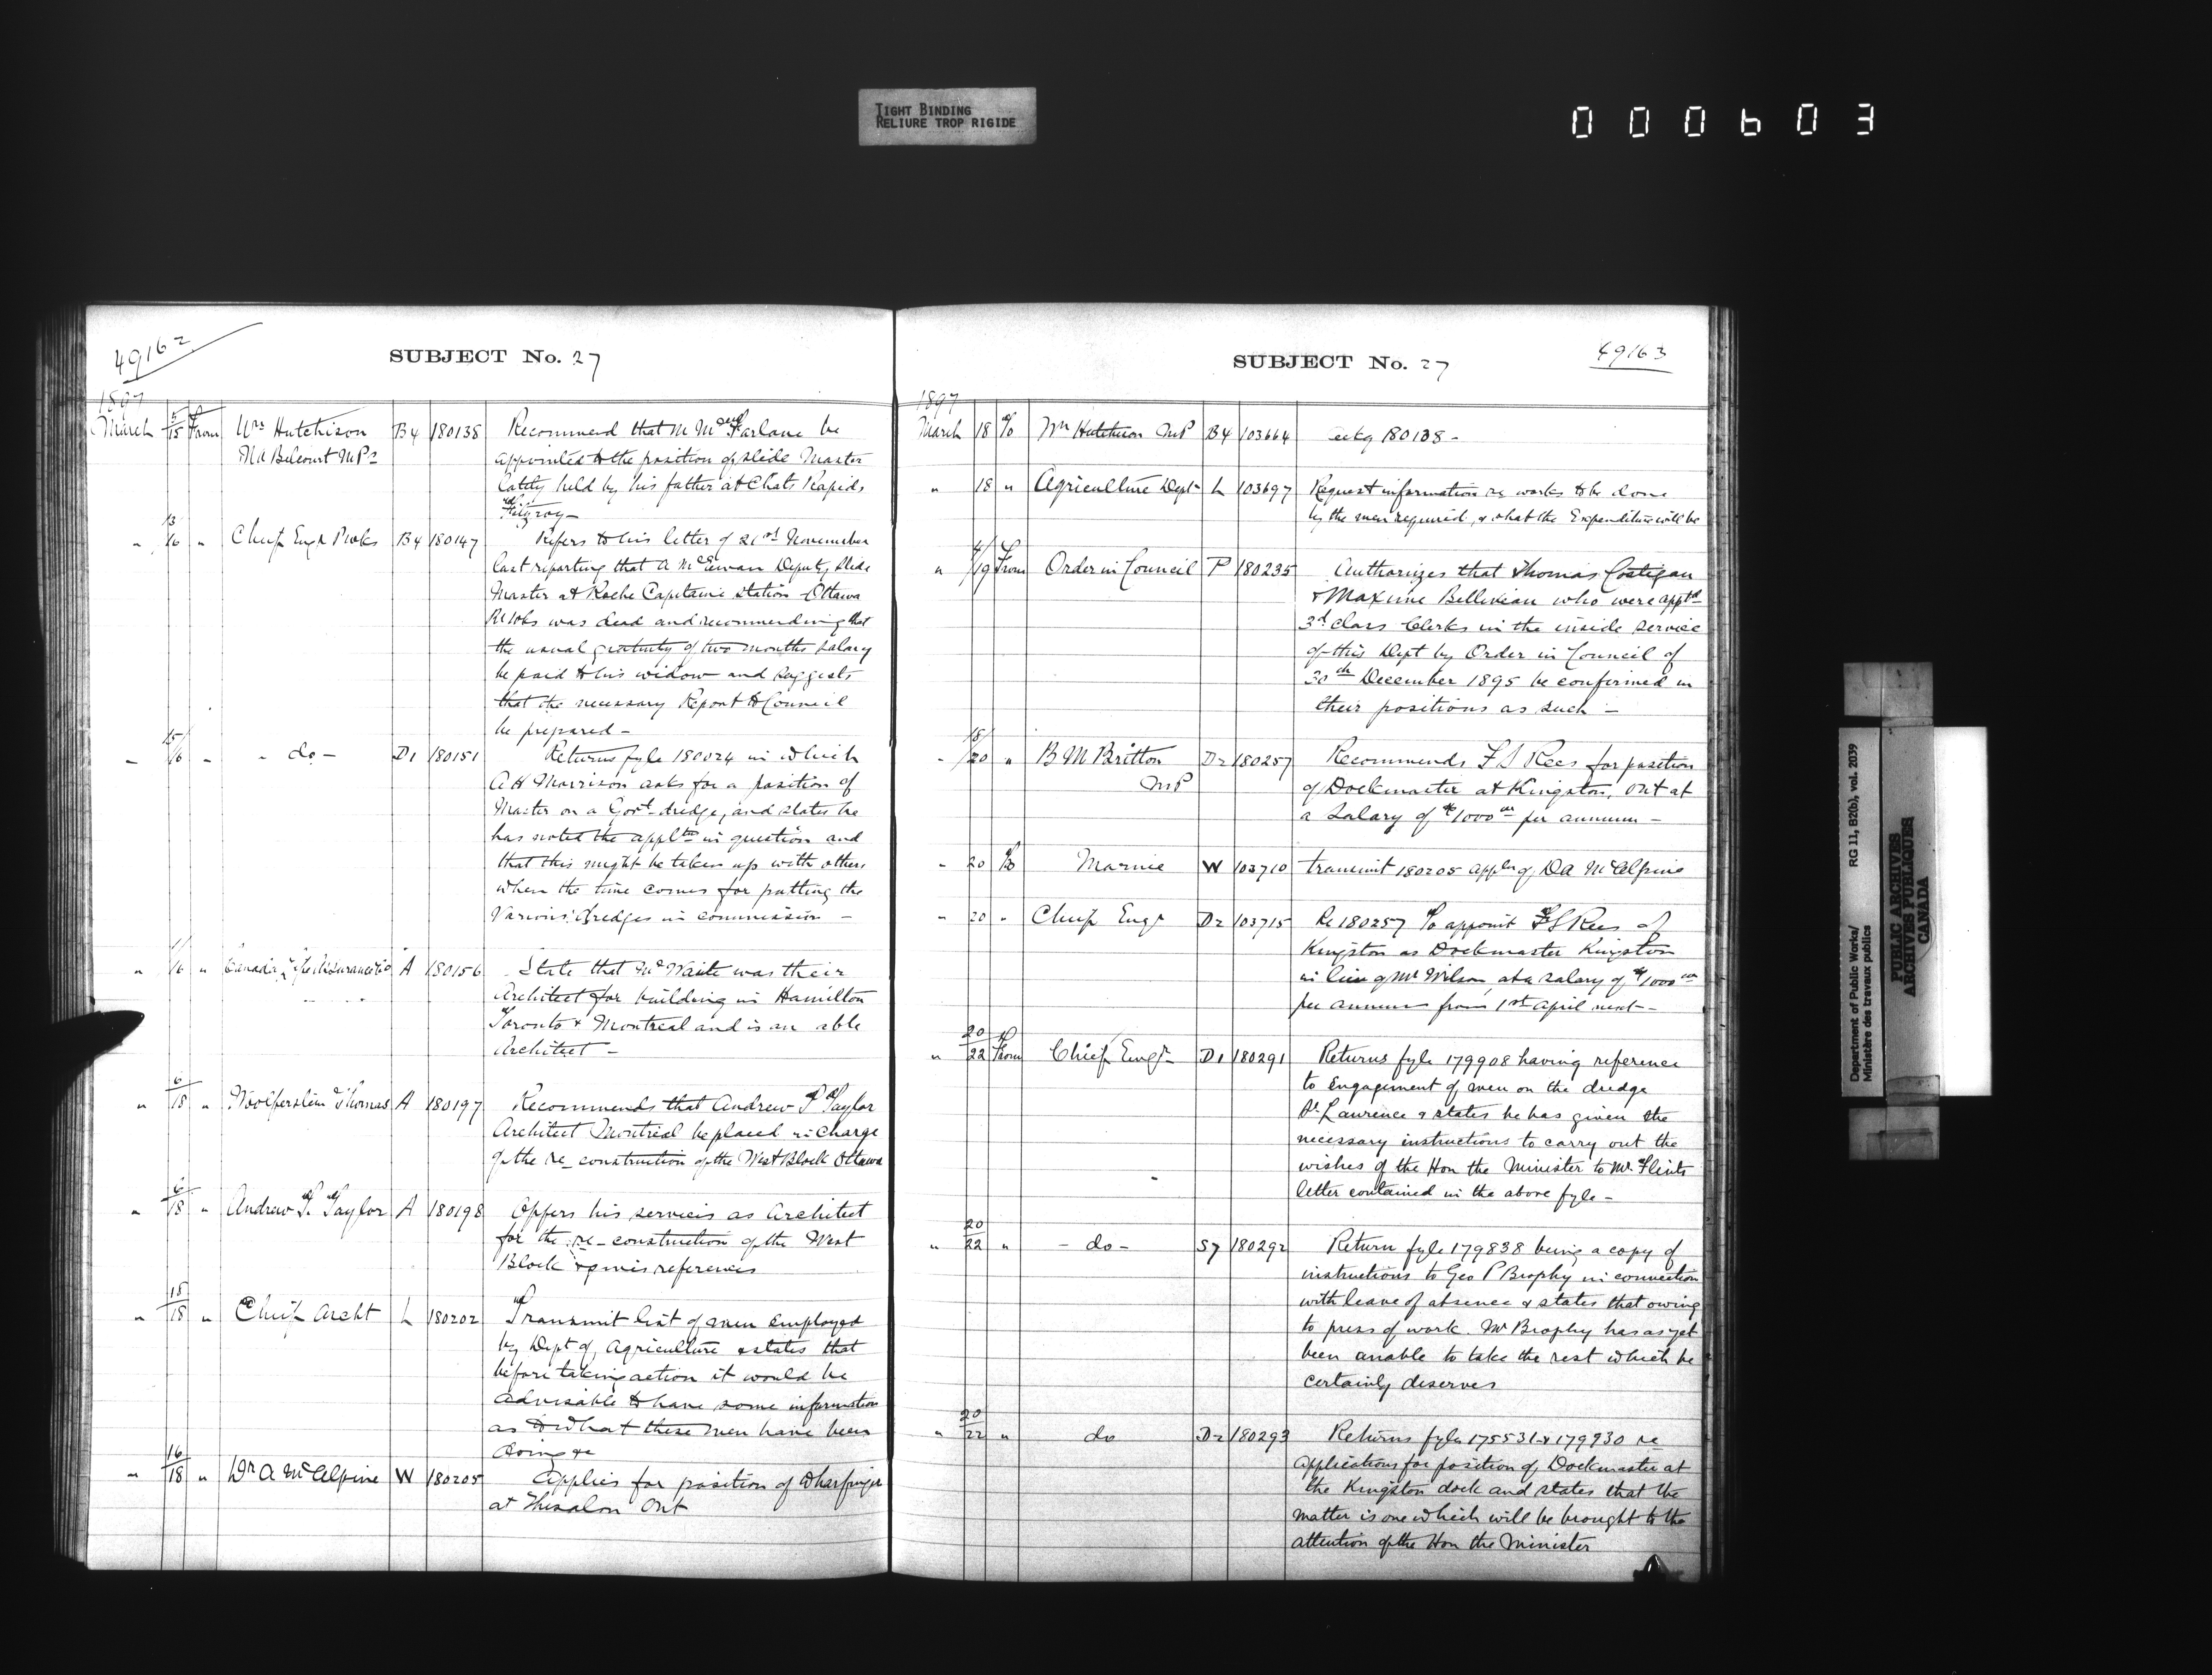 TIGHT BINDING
RELIURE TROP RIGIDE
000603
49162
SUBJECT No. 27
1897
March 5/15 From Mrs Hutchison B4 180138 Recommend that M McFarlane be
Mr Belcourt MPs appointed to the position of slide Master
lately held by his father at Chats Rapids
Fitzroy —
" 13/16 " Chief Engr B4 180147 Refers to his letter of 21st November
last reporting that A McEwan Deputy Slide
Master at Roche Capitaine Station Ottawa
was dead and recommending that
the usual gratuity of two months salary
be paid to his widow and suggests
that the necessary Report to Council
be prepared —
" 15/16 " - do - D1 180151 Returns fyle 180024 in which
A H Morrison asks for a position of
Master on a Govt dredge, and states he
has noted the appltn in question and
that this might be taken up with others
when the time comes for putting the
Various dredges in commission —
" 11/16 " Canada A 180156 State that Mr Waite was their
Architect for building in Hamilton
Toronto & Montreal and is an able
Architect —
" 6/18 " Thomas A 180197 Recommends that Andrew T Taylor
Architect Montreal be placed in charge
of the re-construction of the West Block Ottawa
" 6/18 " Andrew T. Taylor A 180198 Offers his services as Architect
for the re-construction of the West
Block & gives references
" 15/18 " Chief Archt L 180202 Transmit list of men employed
by Dept of Agriculture & states that
before taking action it would be
advisable to have some information
as to what these men have been
doing &c
" 16/18 " Dr A McAlpine W 180205 Applies for position of Wharfinger
at Thesalon Ont
SUBJECT No. 27
49163
1897
March 18 To Mr Hutchison MP B4 103664 ackg 180138 -
" 18 " Agriculture Dept L 103697 Request information re works to be done
by the men required, & what the Expenditure will be
" 4/19 From Order in Council P 180235 Authorizes that Thomas Costigan
& Maxime Bellivian who were apptd
3rd class Clerks in the inside service
of this Dept by Order in Council of
30th December 1895 be confirmed in
their positions as such —
" 18/20 " B M Britton D2 180257 Recommends F S Rees for position
MP of Dockmaster at Kingston, Ont at
a Salary of $1000 00 per annum —
" 20 To Marine W 103710 transmit 180205 appln of D A McAlpine
" 20 " Chief Engr D2 103715 Re 180257 To appoint F S Rees of
Kingston as Dockmaster Kingston
in lieu of Mr Wilson, at a salary of $1000 00
per annum from 1st April next —
" 20/22 From Chief Engr D1 180291 Returns fyle 179908 having reference
to Engagement of men on the dredge
St. Lawrence & states he has given the
necessary instructions to carry out the
wishes of the Hon the Minister to Mr. Flints
letter contained in the above fyle —
" 20/22 " - do - S7 180292 Return fyle 179838 being a copy of
instructions to Geo P Brophy in connection
with leave of absence & states that owing
to press of work. Mr Brophy has as yet
been unable to take the rest which he
certainly deserves
" 20/22 " do D2 180293 Returns fyle 175531 & 179930 re
applications for position of Dockmaster at
the Kingston dock and states that the
matter is one which will be brought to the
attention of the Hon the Minister
Department of Public Works/ RG 11, B2(b), vol. 2039
Ministère des travaux publics
PUBLIC ARCHIVES
ARCHIVES PUBLIQUES
CANADA